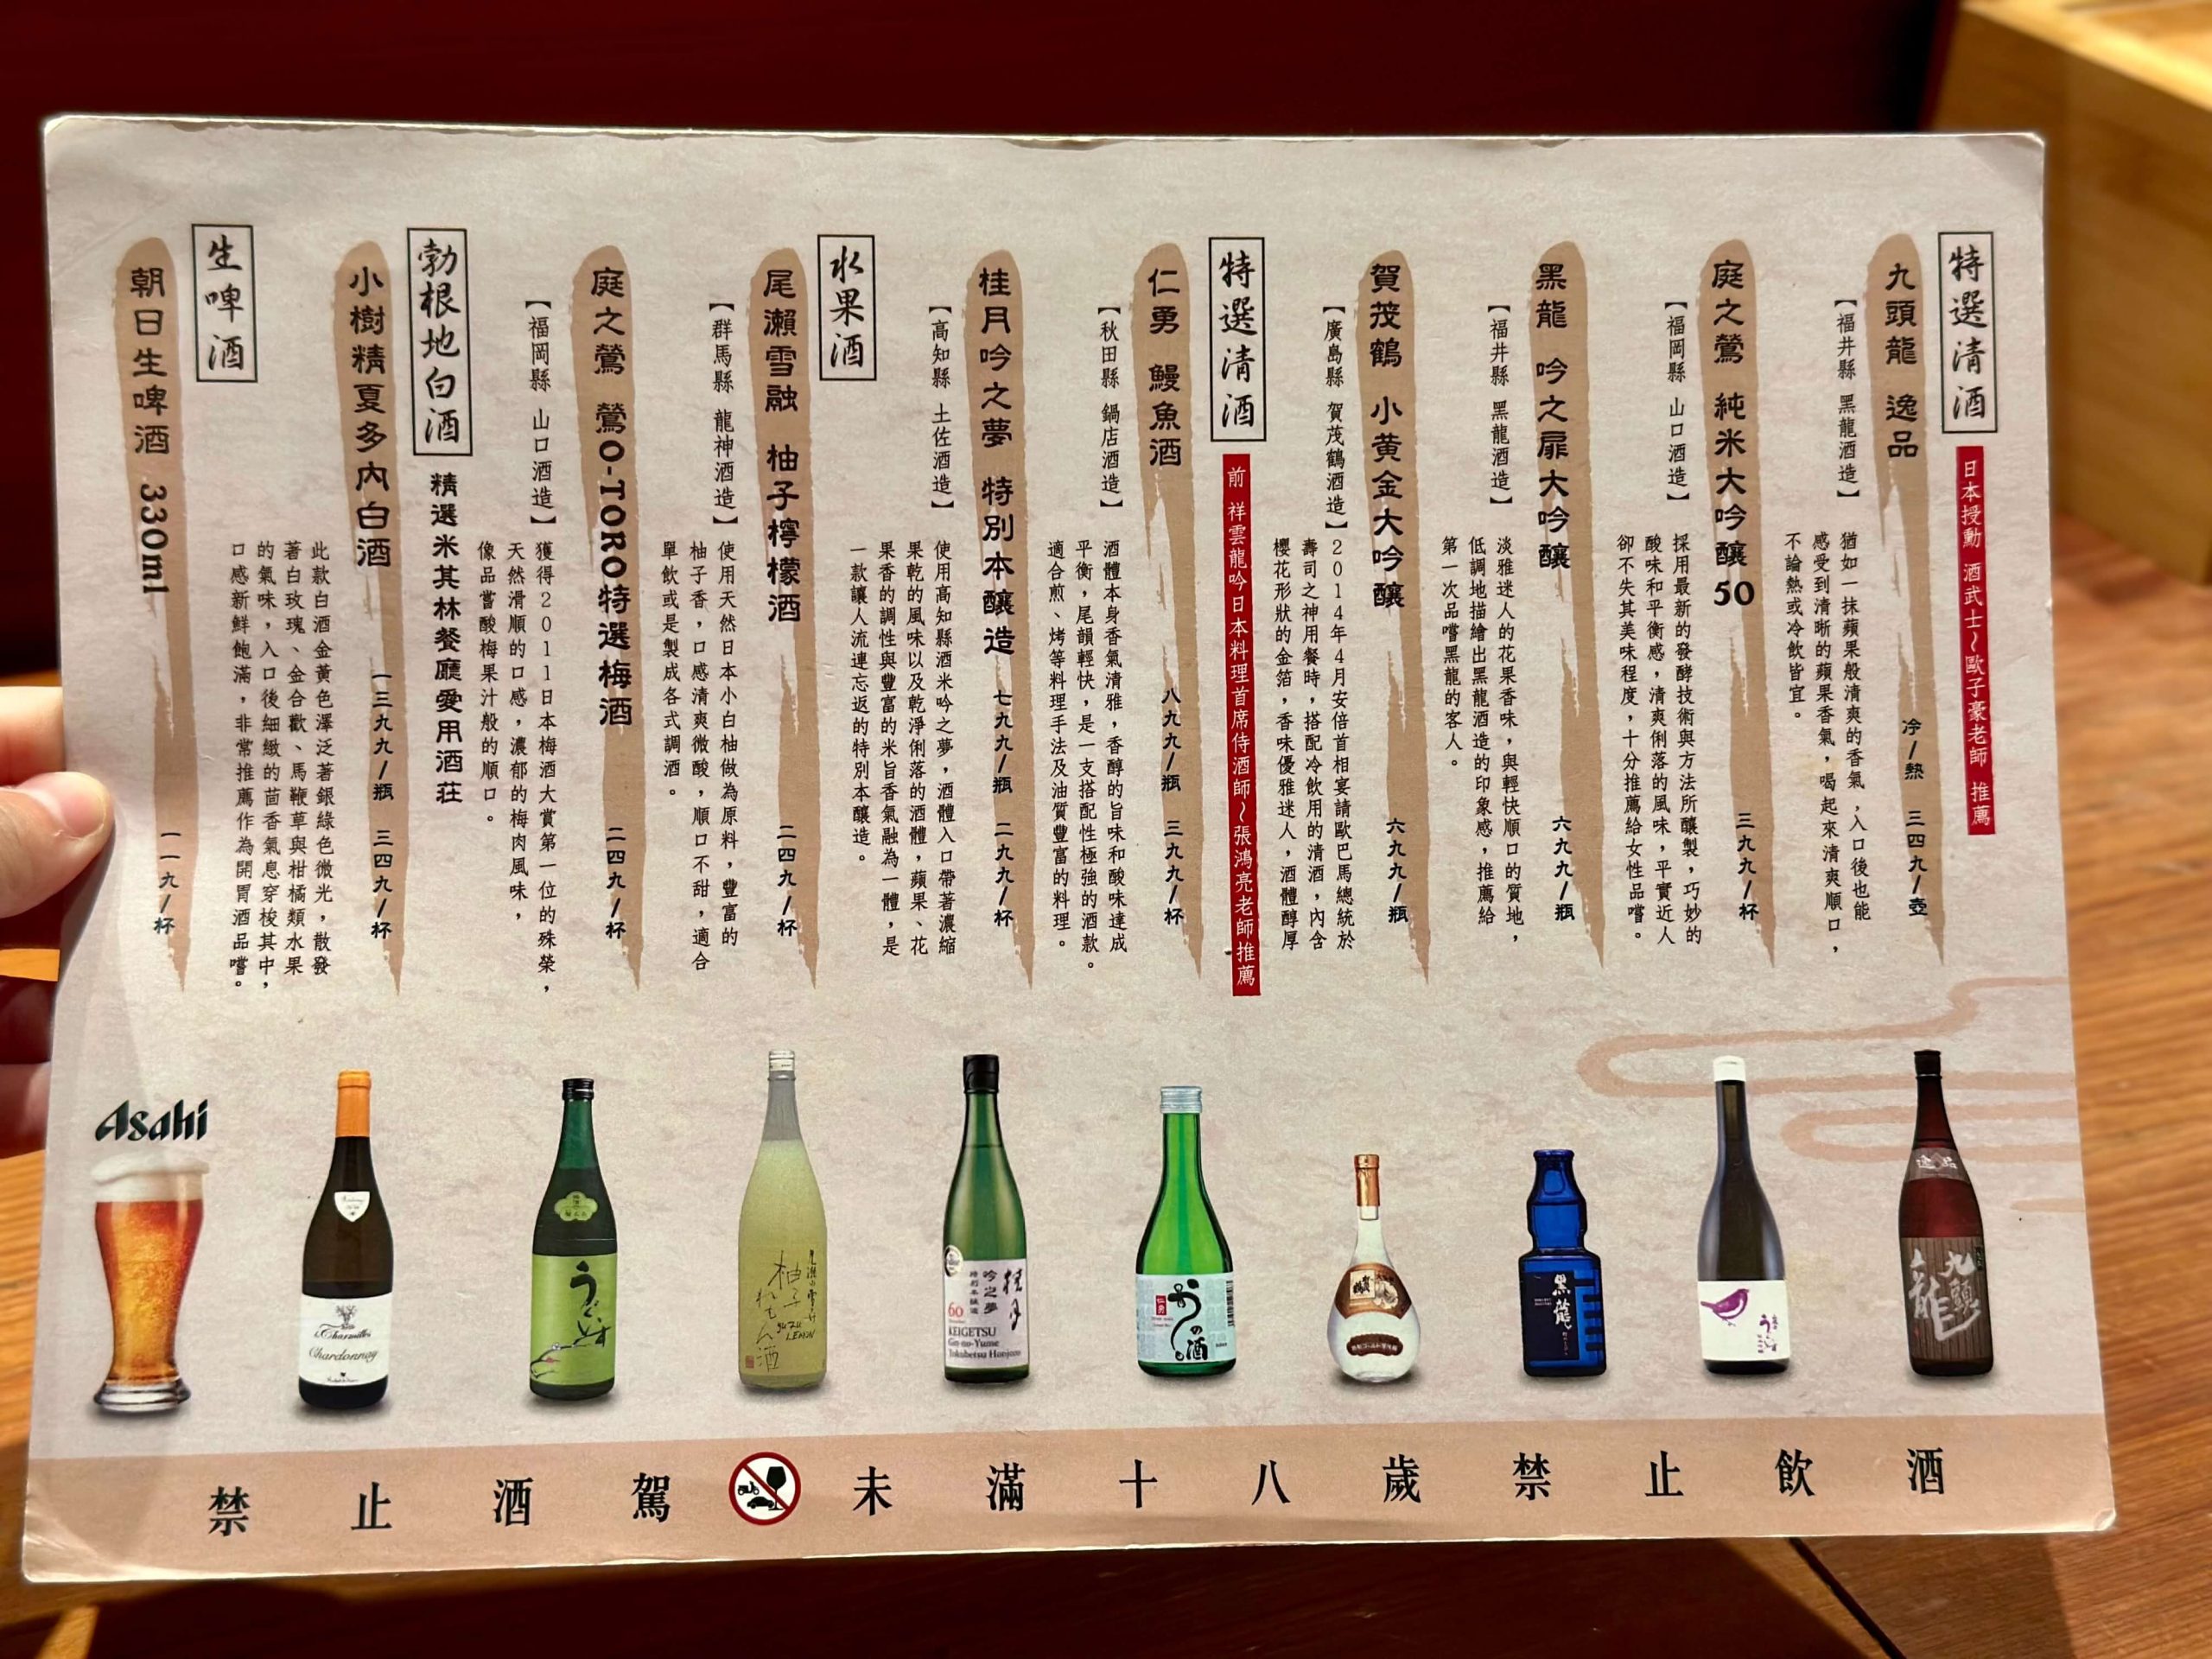 特選清酒
日本授勳 酒武士～歐子豪老師 推薦
九頭龍 逸品
冷/熱 三四九/壺
【福井縣 黑龍酒造】
猶如一抹蘋果般清爽的香氣,入口後也能
感受到清晰的蘋果香氣,喝起來清爽順口,
不論熱或冷飲皆宜。
庭之鶯 純米大吟釀50
三九九/杯
【福岡縣 山口酒造】
採用最新的發酵技術與方法所釀製,巧妙的
酸味和平衡感,清爽俐落的風味,平實近人
卻不失其美味程度,十分推薦給女性品嚐。
黑龍 吟之扉大吟釀
六九九/瓶
【福井縣 黑龍酒造】
淡雅迷人的花果香味,與輕快順口的質地,
低調地描繪出黑龍酒造的印象感,推薦給
第一次品嚐黑龍的客人。
賀茂鶴 小黃金大吟釀
六九九/瓶
【廣島縣 賀茂鶴酒造】
2014年4月安倍首相宴請歐巴馬總統於
壽司之神用餐時,搭配冷飲用的清酒,內含
櫻花形狀的金箔,香味優雅迷人,酒體醇厚
特選清酒
前 祥雲龍吟日本料理首席侍酒師～張鴻亮老師推薦
仁勇 鰻魚酒
八九九/瓶 三九九/杯
【秋田縣 鍋店酒造】
酒體本身香氣清雅,香醇的旨味和酸味達成
平衡,尾韻輕快,是一支搭配性極強的酒款。
適合煎、烤等料理手法及油質豐富的料理。
桂月吟之夢 特別本釀造
七九九/瓶 二九九/杯
【高知縣 土佐酒造】
使用高知縣酒米吟之夢,酒體入口帶著濃縮
果乾的風味以及乾淨俐落的酒體,蘋果、花
果香的調性與豐富的米旨香氣融為一體,是
一款讓人流連忘返的特別本釀造。
水果酒
尾瀨雪融 柚子檸檬酒
二四九/杯
【群馬縣 龍神酒造】
使用天然日本小白柚做為原料,豐富的
柚子香,口感清爽微酸,順口不甜,適合
單飲或是製成各式調酒。
庭之鶯 鶯O-TORO特選梅酒
二四九/杯
【福岡縣 山口酒造】
獲得2011日本梅酒大賞第一位的殊榮,
天然滑順的口感,濃郁的梅肉風味,
像品嘗酸梅果汁般的順口。
勃根地白酒
精選米其林餐廳愛用酒莊
小樹精夏多內白酒
一三九九/瓶 三四九/杯
此款白酒金黃色澤泛著銀綠色微光,散發
著白玫瑰、金合歡、馬鞭草與柑橘類水果
的氣味,入口後細緻的茴香氣息穿梭其中,
口感新鮮飽滿,非常推薦作為開胃酒品嚐。
生啤酒
朝日生啤酒 330ml
一一九/杯
Asahi
Charmilles
Chardonnay
うぐいす
尾瀬の雪どけ
柚子れもん酒
YUZU LEMON
桂月
吟之夢
特別本釀造
60
KEIGETSU
Gin-no-Yume
Tokubetsu Honjozo
仁勇
の酒
黒龍
うぐいす
逸品
九頭龍
禁止酒駕 未滿十八歲禁止飲酒